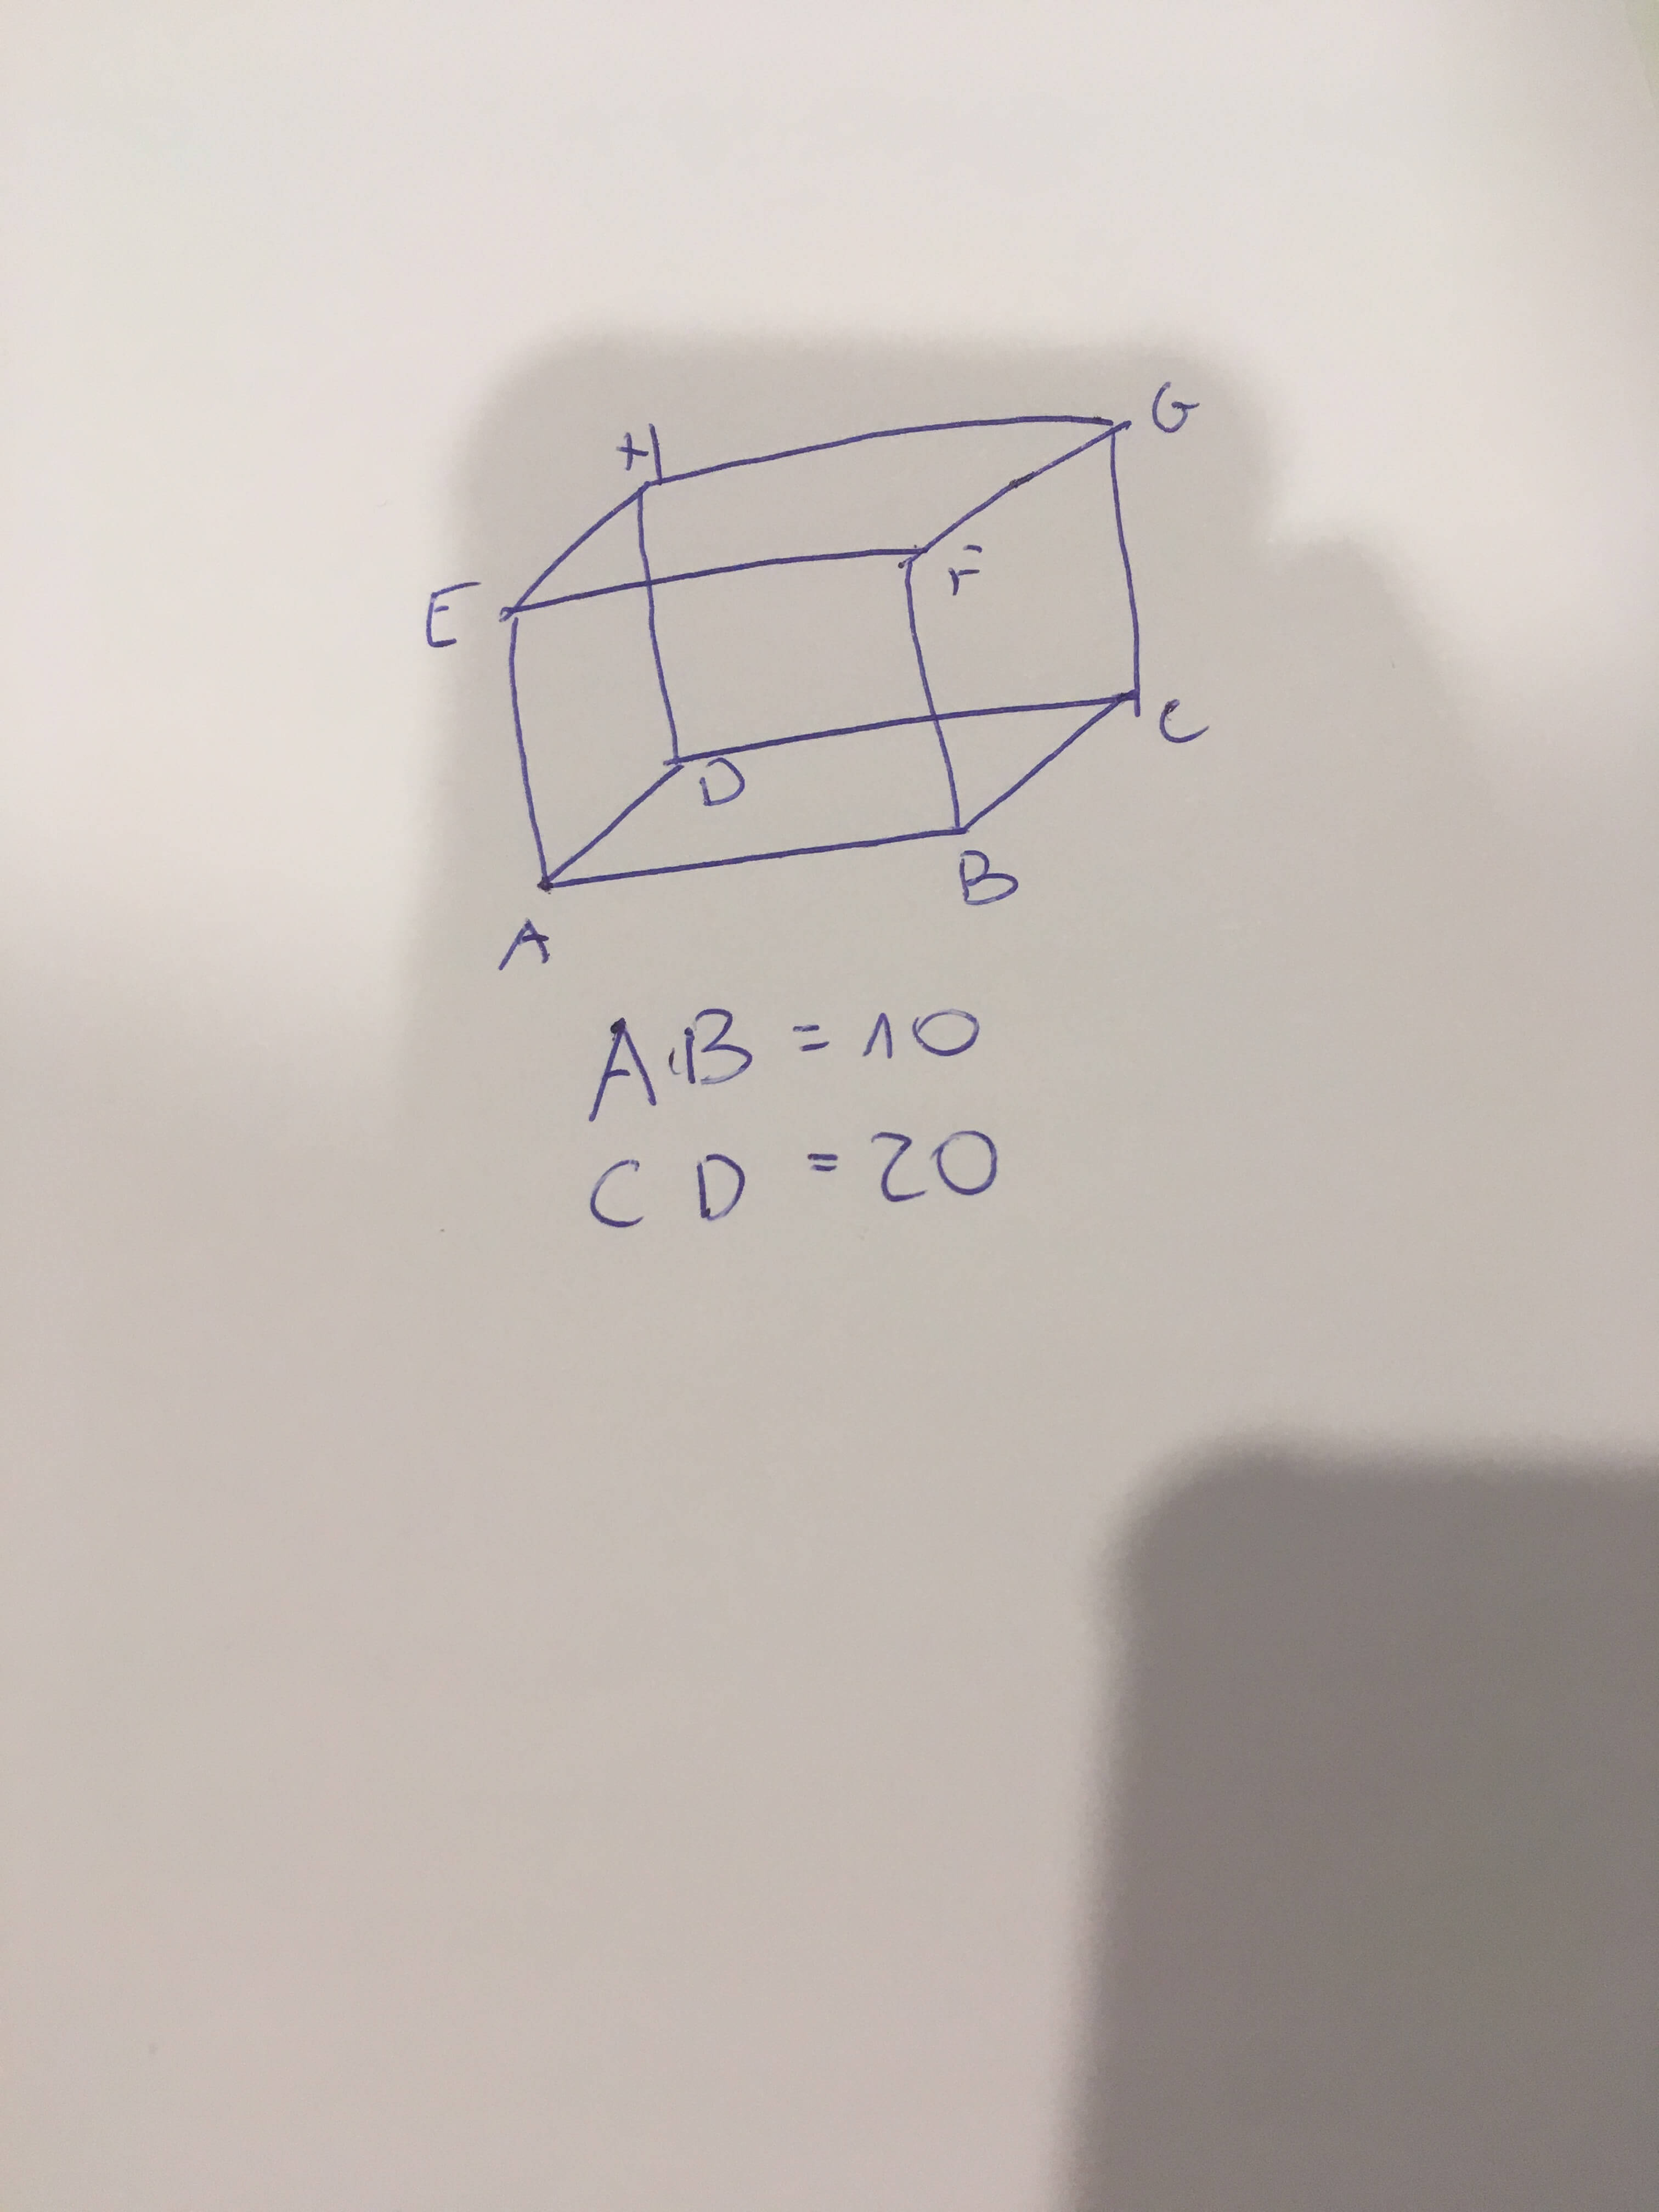 H
G
E
F
D
C
B
A
AB = 10
CD = 20